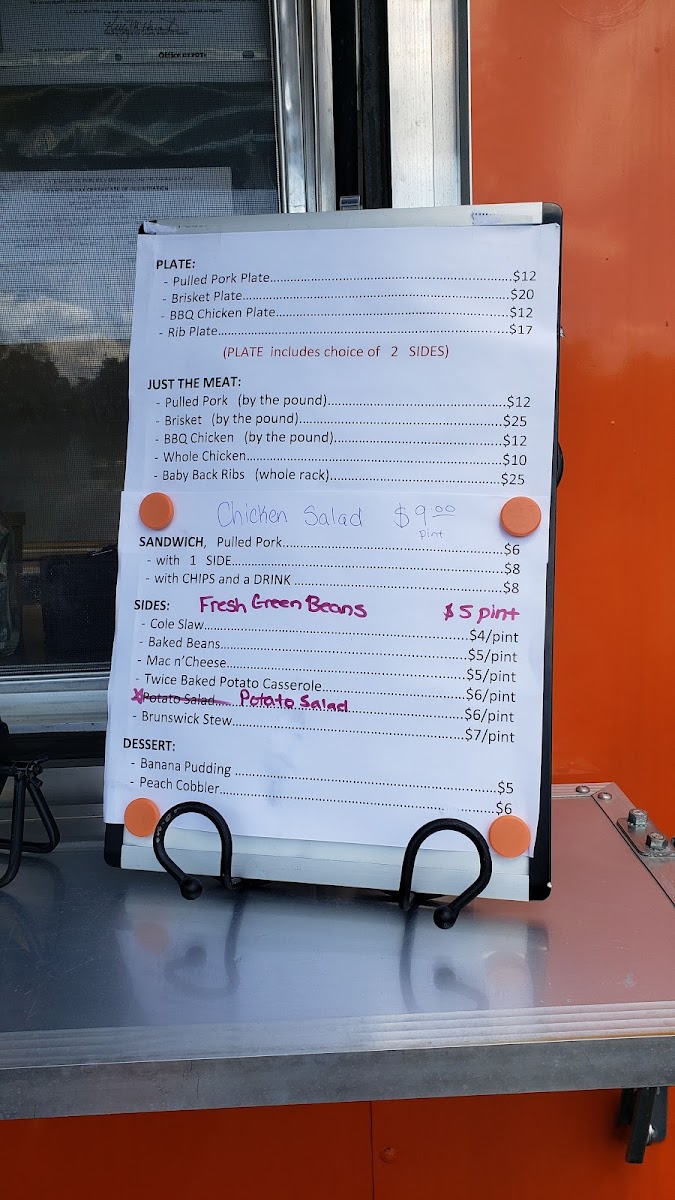 Office DEPOT
CERTIFICATE OF REGISTRATION
PLATE:
- Pulled Pork Plate....................$12
- Brisket Plate....................$20
- BBQ Chicken Plate....................$12
- Rib Plate....................$17
(PLATE includes choice of 2 SIDES)
JUST THE MEAT:
- Pulled Pork (by the pound)....................$12
- Brisket (by the pound)....................$25
- BBQ Chicken (by the pound)....................$12
- Whole Chicken....................$10
- Baby Back Ribs (whole rack)....................$25
Chicken Salad $9.00
pint
SANDWICH, Pulled Pork....................$6
- with 1 SIDE....................$8
- with CHIPS and a DRINK ....................$8
SIDES: Fresh Green Beans $5 pint
- Cole Slaw....................$4/pint
- Baked Beans....................$5/pint
- Mac n'Cheese....................$5/pint
- Twice Baked Potato Casserole....................$6/pint
Potato Salad.... Potato Salad ....................$6/pint
- Brunswick Stew....................$7/pint
DESSERT:
- Banana Pudding ....................$5
- Peach Cobbler....................$6